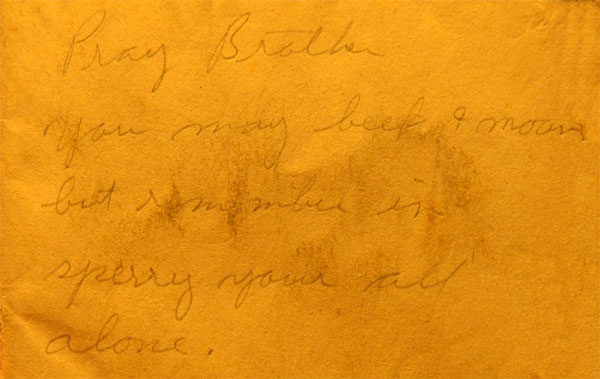 Pray Brother
You may beef & moan
but remember in
sperry your all
alone.